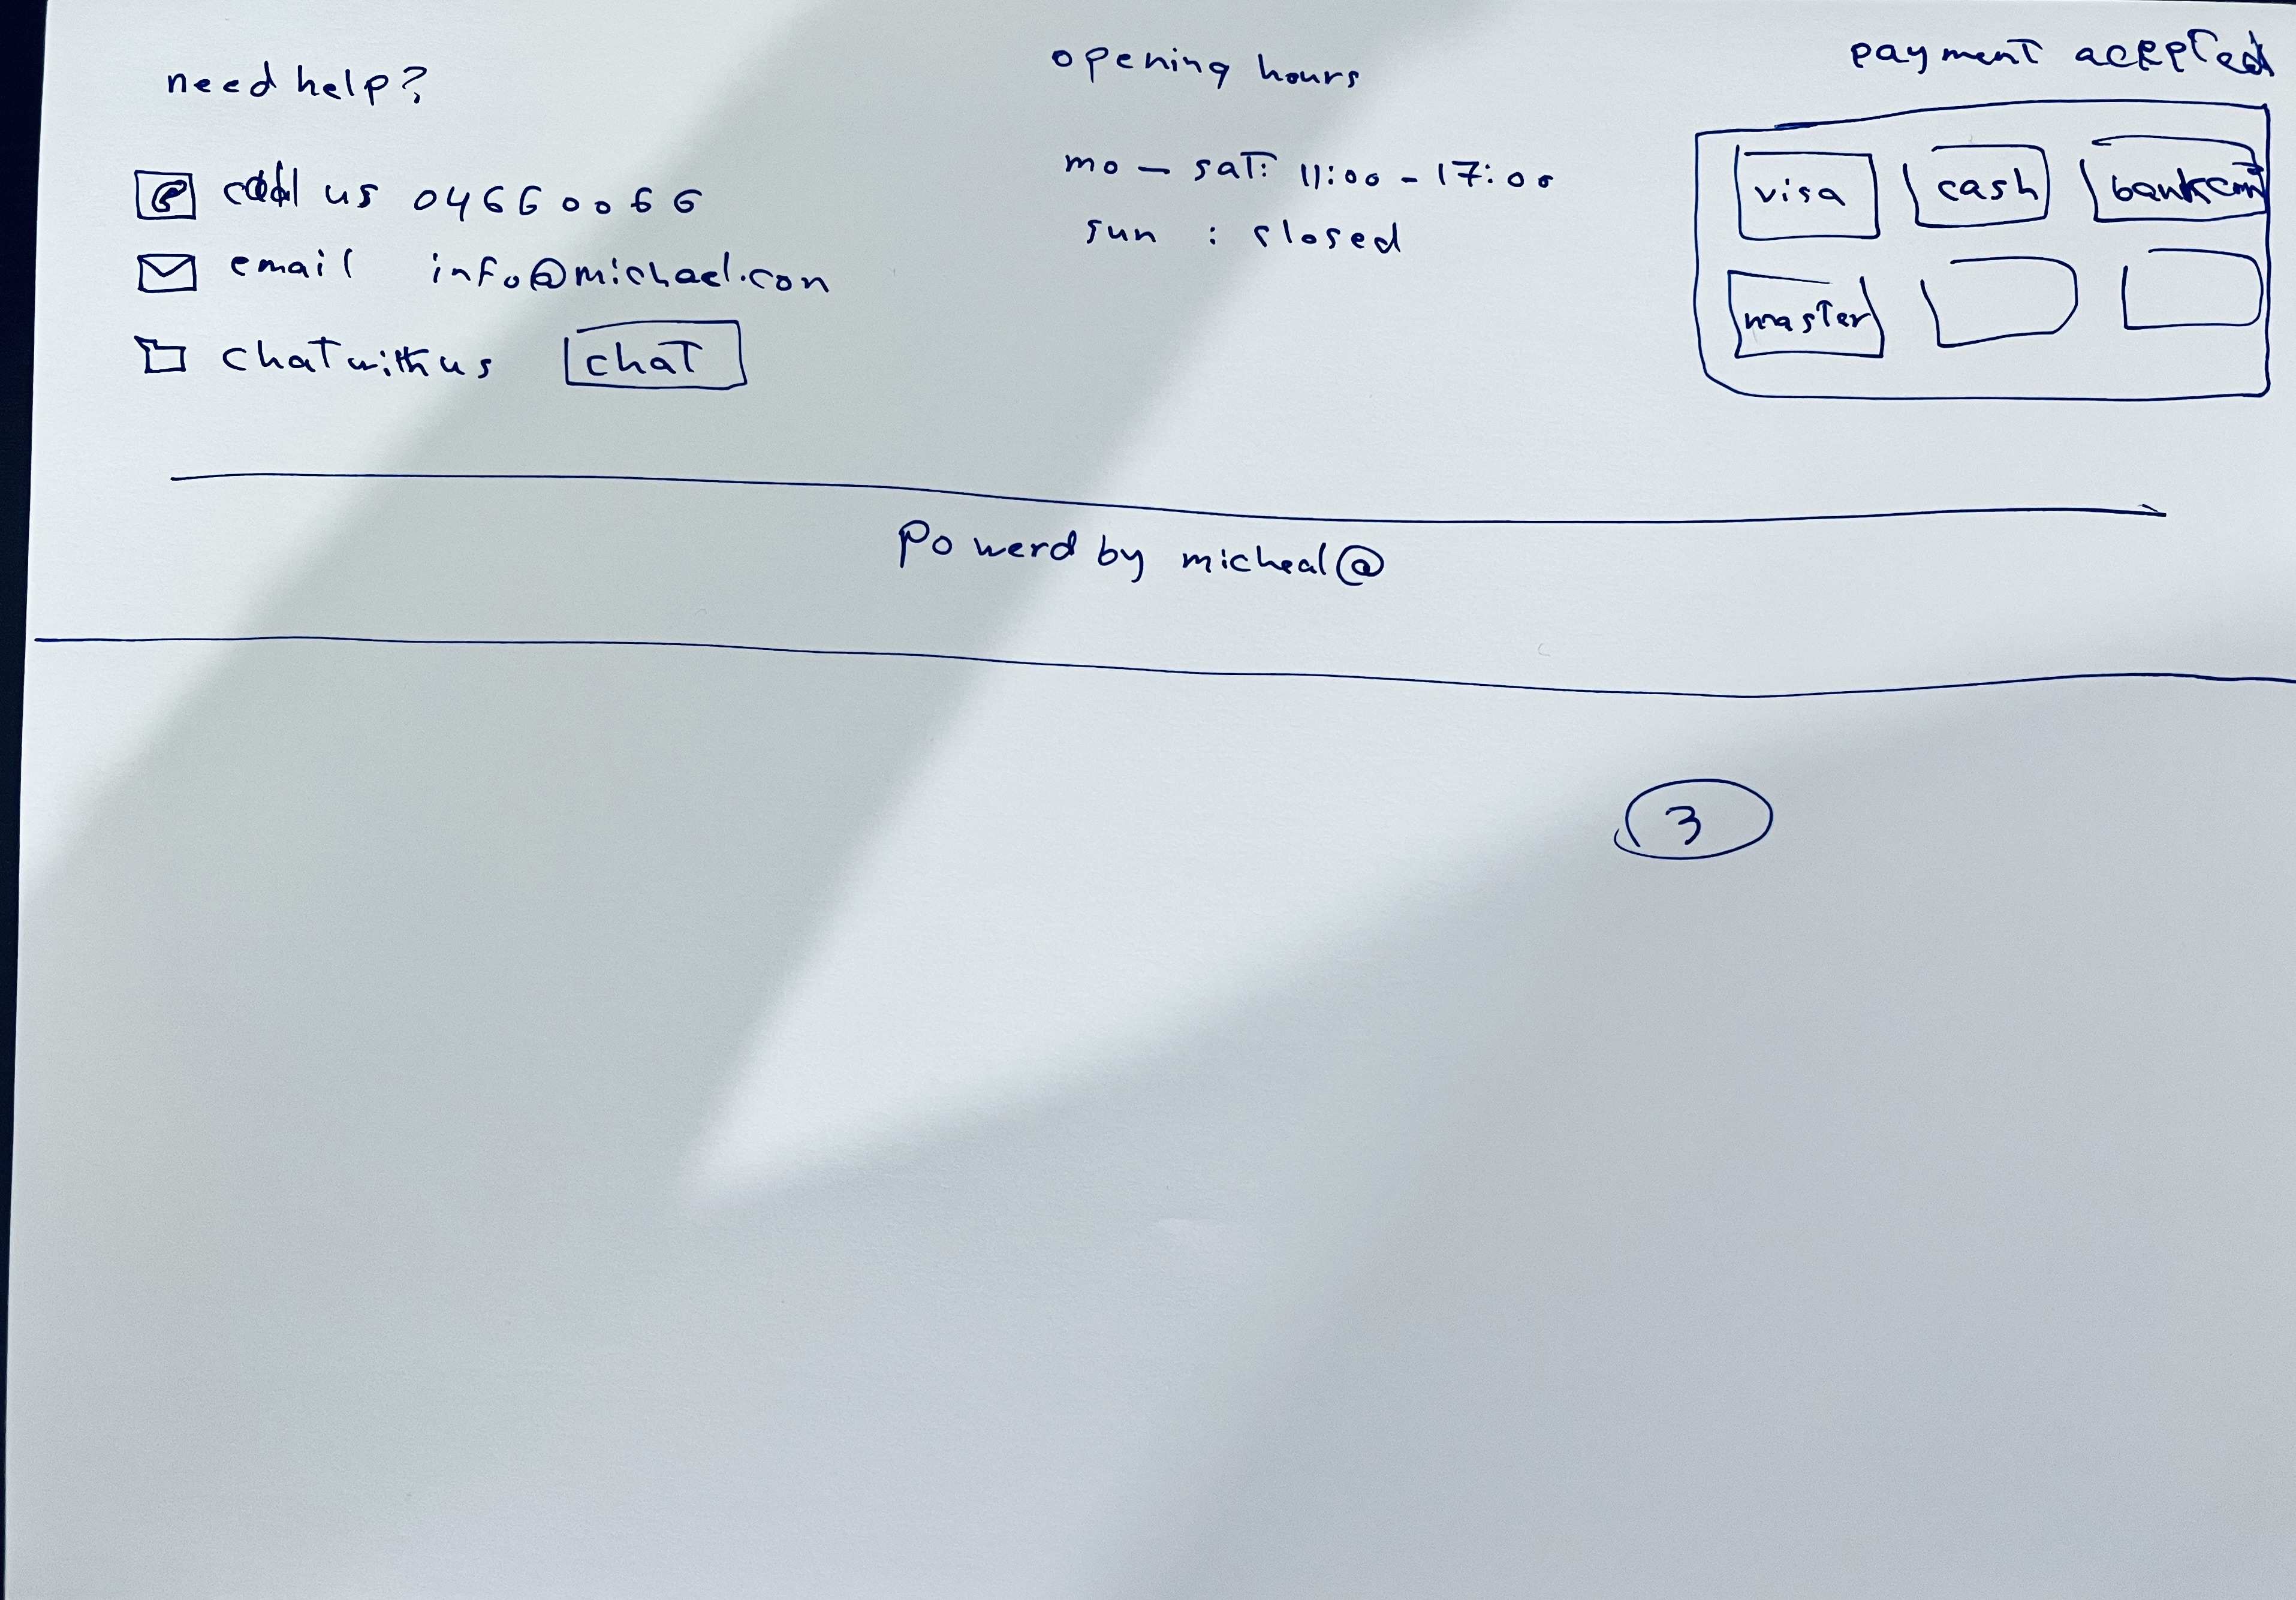 need help?
call us 04660066
email info@michael.con
chat with us chat
opening hours
mo - sat: 11:00 - 17:00
sun : closed
payment
visa cash
master
Powerd by micheal@
3